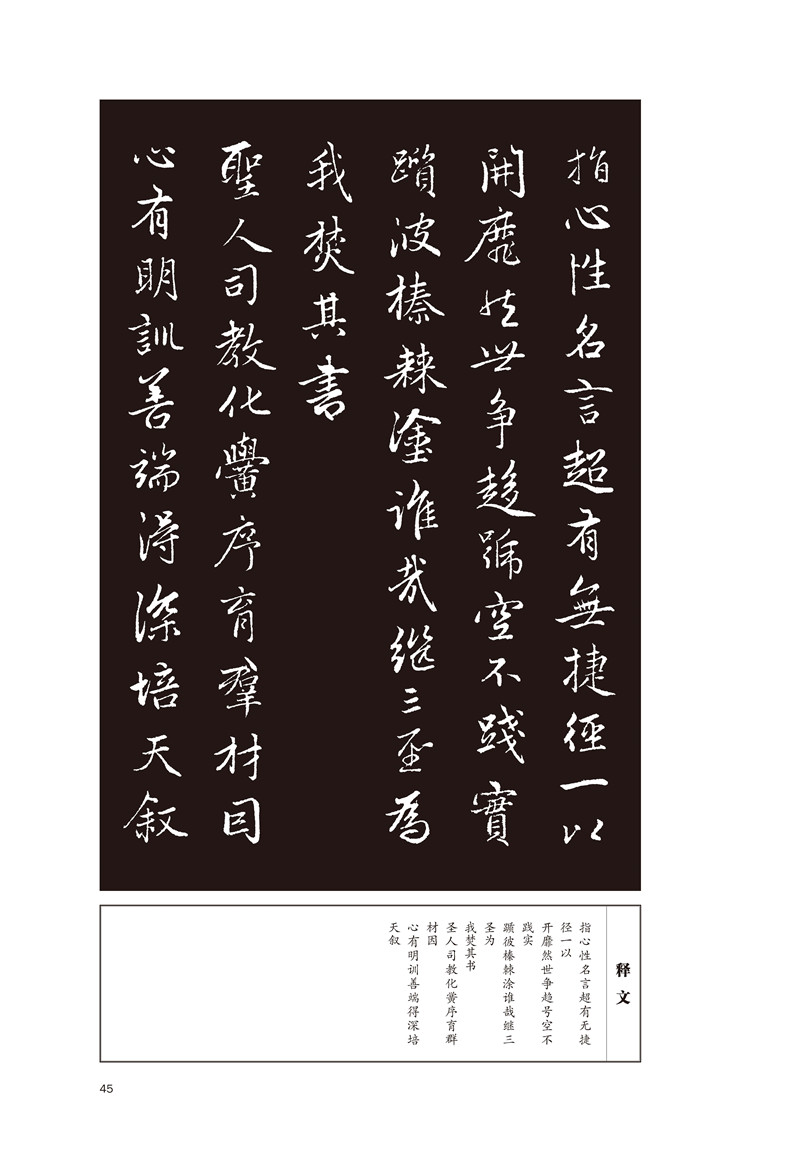 指心性名言超有無捷徑一以
開靡然世争趍號空不踐實
躓彼榛棘塗谁哉继三聖為
我焚其書
聖人司教化黌序育羣材因
心有明訓善端得深培天叙
释文
指心性名言超有无捷
径一以
开靡然世争趋号空不
践实
踬彼榛棘涂谁哉继三
圣为
我焚其书
圣人司教化黉序育群
材因
心有明训善端得深培
天叙
45